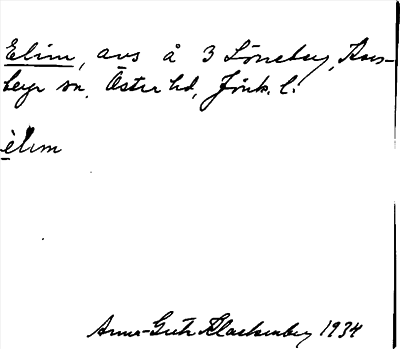 Elim, avs å 3 Löneby, Kors-
berga sn. Östra hd, Jönk. l.
èlim
Anna-Greta Klackenberg 1934